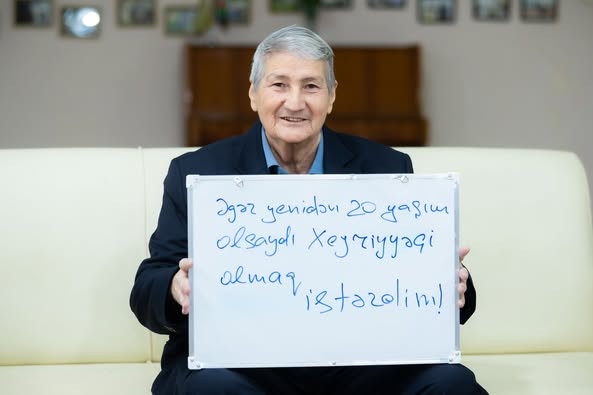 əgər yenidən 20 yaşım
olsaydı Xeyriyyəçi
olmaq
istərdim!